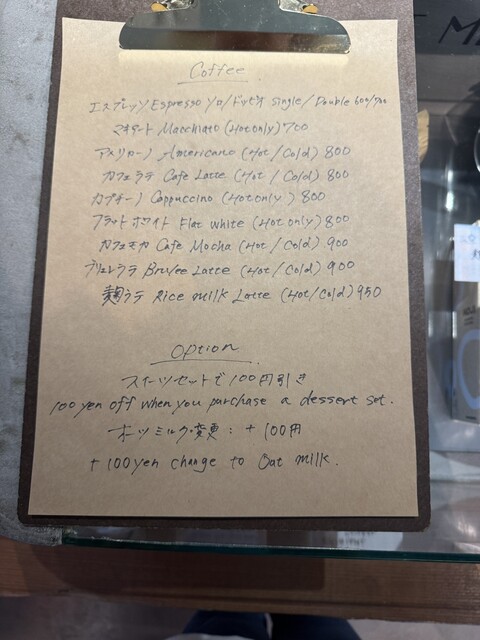 Coffee
エスプレッソ Espresso ソロ/ドッピオ Single/Double 600/700
マキアート Macchiato (Hot only) 700
アメリカーノ Americano (Hot/Cold) 800
カフェラテ Cafe Latte (Hot/Cold) 800
カプチーノ Cappuccino (Hot only) 800
フラットホワイト Flat White (Hot only) 800
カフェモカ Cafe Mocha (Hot/Cold) 900
ブリュレラテ Brulee Latte (Hot/Cold) 900
麹ラテ Rice milk Latte (Hot/Cold) 950
Option
スイーツセットで100円引き
100 yen off when you purchase a dessert set.
オーツミルク変更: +100円
+100yen change to Oat milk.